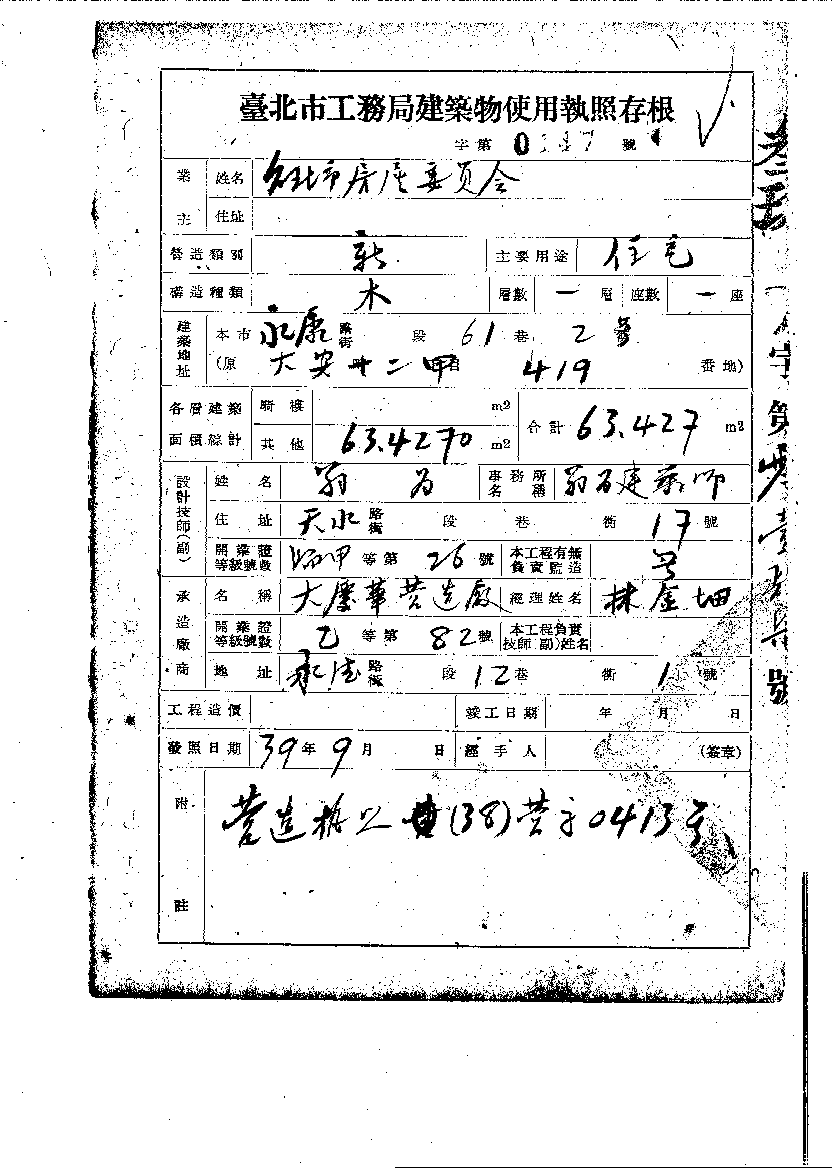 臺北市工務局建築物使用執照存根
字第 0347 號
業主 姓名 台北市房屋委員会
住址
營造類別 新 主要用途 住宅
構造種類 木 層數 一 層 座數 一 座
建築地址 本市 永康 路街 段 61 巷 2 号
(原 大安十二甲 419 番地)
各層建築面積綜計 騎樓 m2 合計 63.427 m2
其他 63.4270 m2
設計技師(副) 姓名 事務所名稱 建築師
住址 天水 路街 段 巷 衖 17 號
開業證等級號數 甲 等第 26 號 本工程有無負責監造
承造廠商 名稱 大慶華营造廠 經理姓名 林金
開業證等級號數 乙 等第 82 號 本工程負責技師(副)姓名
地址 路街 段 12 巷 衖 1 號
工程造價 竣工日期 年 月 日
發照日期 39 年 9 月 日 經手人 (簽章)
附註 营造 (38) 营字0413号